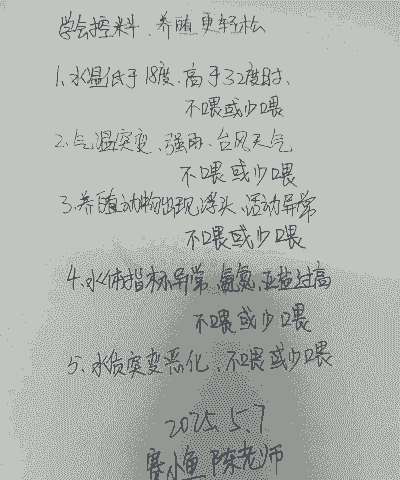 学会控料，养殖更轻松
1、水温低于18度、高于32度时、
不喂或少喂
2、气温突变、强雨、台风天气
不喂或少喂
3、养殖动物出现浮头、活动异常
不喂或少喂
4、水体指标异常、氨氮、亚盐过高
不喂或少喂
5、水质突变恶化、不喂或少喂
2025.5.7
赛小鱼 陈老师